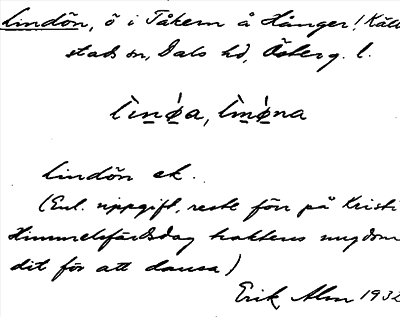 Lindön, ö i Tåkern å Hånger! Käll
stads sn, Dals hd, Österg. l.
lìnǿa, lìnǿna
Lindön ek.
(Enl. uppgift, reste förr på Kristi
Himmelsfärdsdag traktens ungdom
dit för att dansa)
Erik Alm 1932